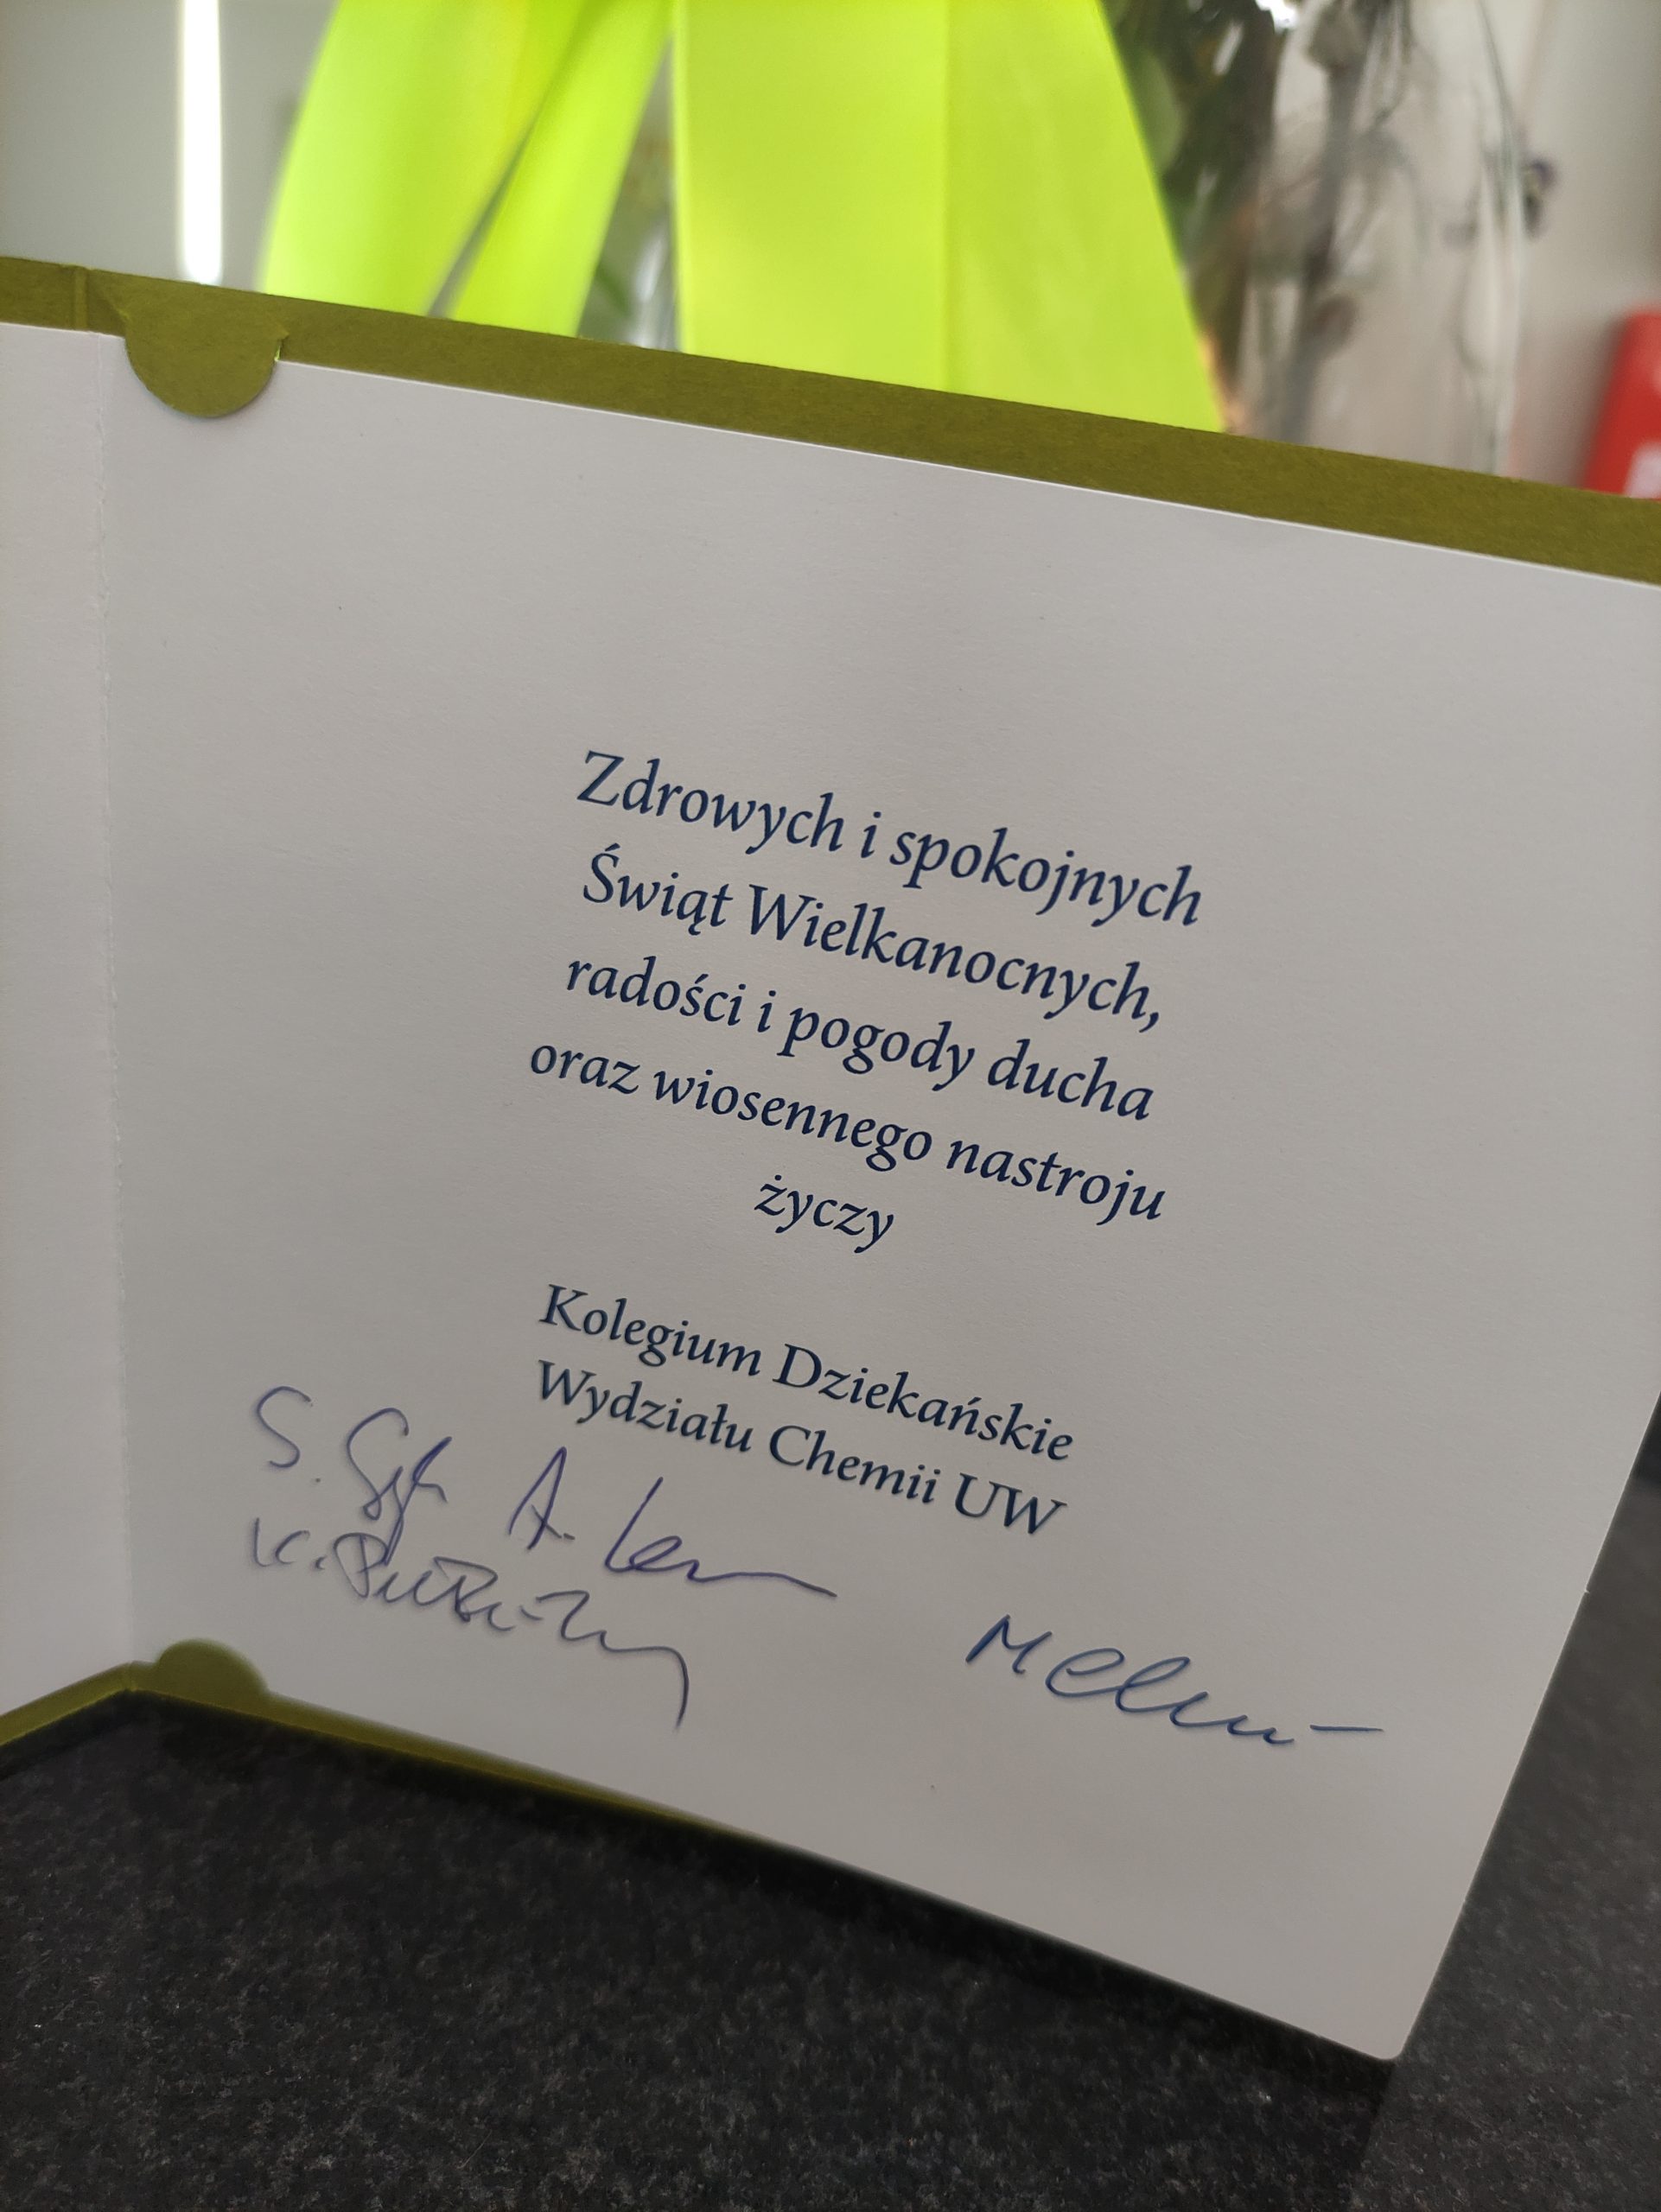 Zdrowych i spokojnych
Świąt Wielkanocnych,
radości i pogody ducha
oraz wiosennego nastroju
życzy
Kolegium Dziekańskie
Wydziału Chemii UW
S.
A.
K.